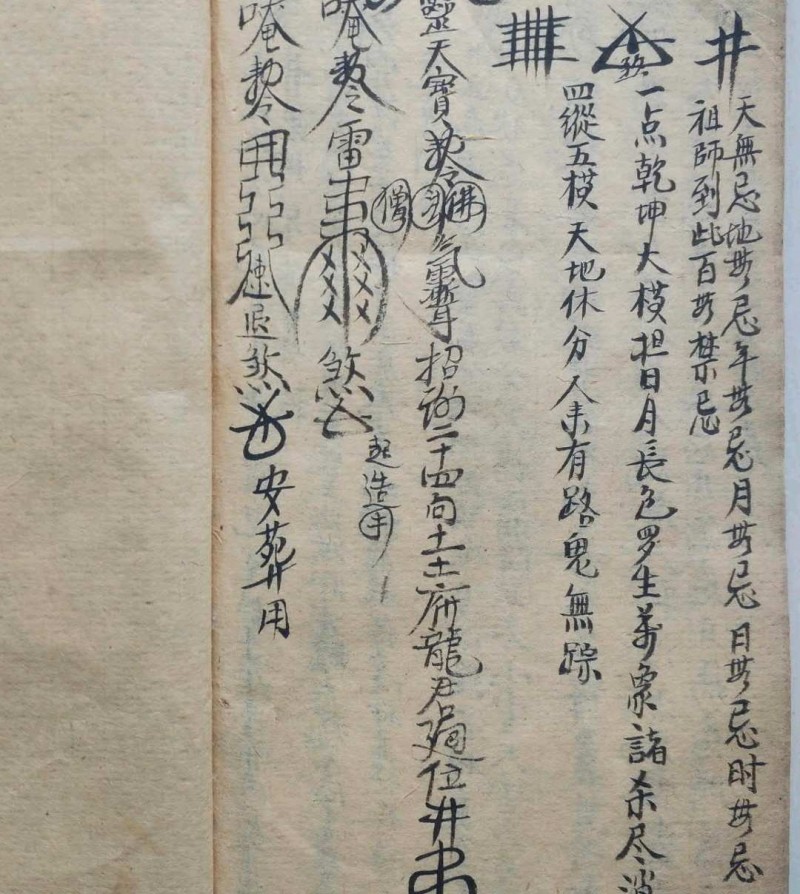 井
天無忌地毋忌年毋忌月毋忌日毋忌时毋忌
祖師到此百毋禁忌
一点乾坤大橫担日月長包罗生萬象諸杀尽消
四縱五橫天地休分人来有路鬼無踪
靈天寶勅令
佛
僧
招谢二十四向土土府龍君

位井
唵勅令雷
煞
起造用
唵勅令
速退煞
安葬用